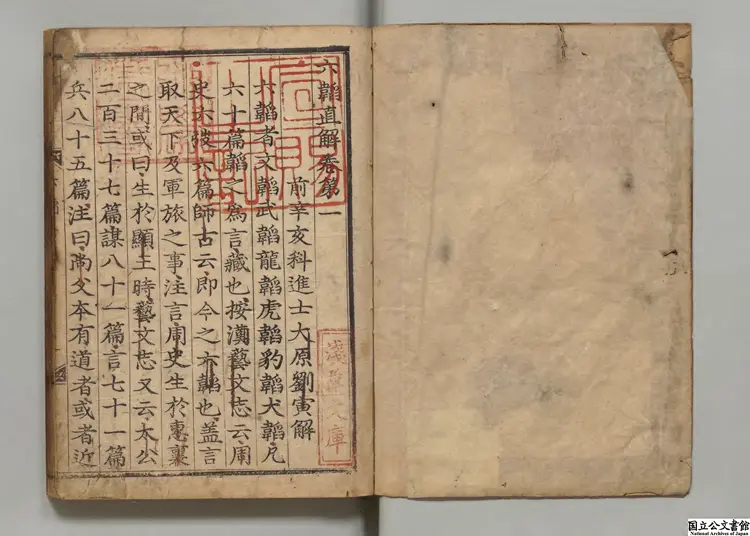 六韜直解卷第一
前辛亥科進士大原劉寅解
六韜者文韜武韜龍韜虎韜豹韜犬韜凡
六十篇韜之為言藏也按漢藝文志云周
史六弢六篇師古云即今之六韜也盖言
取天下及軍旅之事注言周史生於惠襄
之間或曰生於顯王時藝文志又云太公
二百三十七篇謀八十一篇言七十一篇
兵八十五篇注曰尚父本有道者或者近
淺草文庫
国立公文書館
National Archives of Japan